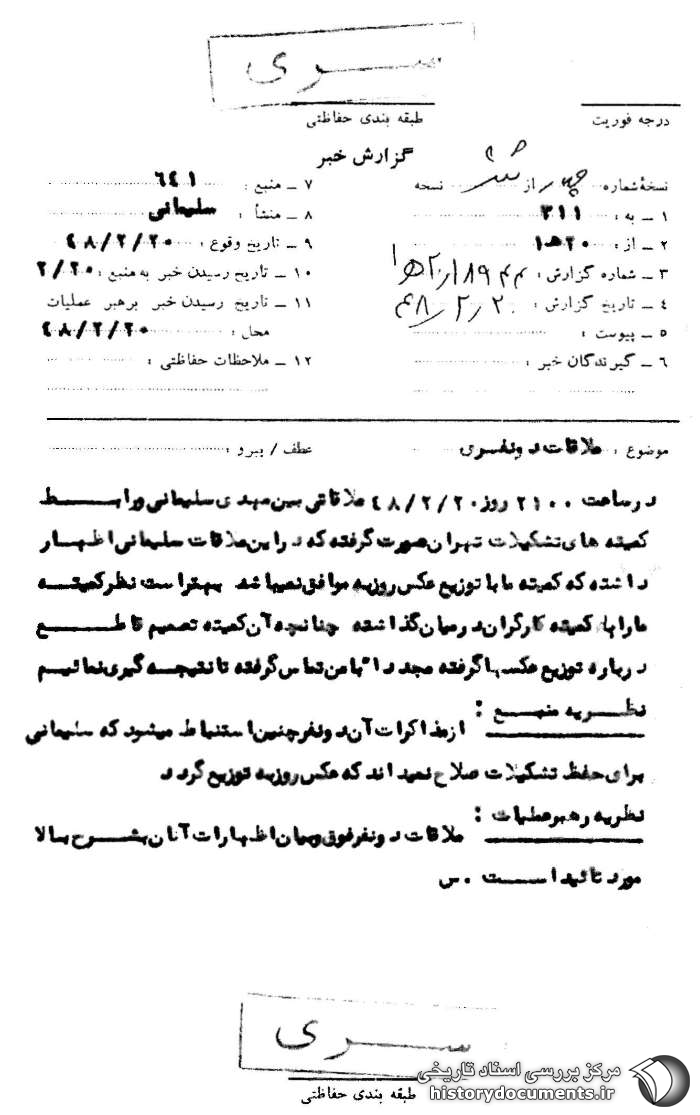 سری
درجه فوریت
طبقه بندی حفاظتی
گزارش خبر
نسخهٔ شماره چهار از شش نسخه
۱ ـ به : ۳۱۱
۲ ـ از : ۲۰ هـ ۱
۳ ـ شماره گزارش :
۴ ـ تاریخ گزارش : ۴۸/۲/۲۰
۵ ـ پیوست :
۶ ـ گیرندگان خبر :
۷ ـ منبع : ۶۴۱
۸ ـ منشأ : سلیمانی
۹ ـ تاریخ وقوع : ۴۸/۲/۲۰
۱۰ ـ تاریخ رسیدن خبر به منبع : ۲/۲۰
۱۱ ـ تاریخ رسیدن خبر برهبر عملیات
محل : ۴۸/۲/۲۰
۱۲ ـ ملاحظات حفاظتی :
موضوع : ملاقات دونفری
عطف / پیرو :
در ساعت ۲۱۰۰ روز ۴۸/۲/۲۰ ملاقاتی بین مهدی سلیمانی و رابط
کمیته های تشکیلات تهران صورت گرفته که در این ملاقات سلیمانی اظهار
داشته که کمیته ما با توزیع عکس روزبه موافق نمیباشد بهتر است نظر کمیته
ما را با کمیته کارگران در میان گذاشته چنانچه آن کمیته تصمیم قاطع
درباره توزیع عکسها گرفته مجددا با من تماس گرفته تا نتیجه گیری نمائیم
نظریه منبع : از مذاکرات آن دو نفر چنین استنباط میشود که سلیمانی
برای حفظ تشکیلات صلاح نمیداند که عکس روزبه توزیع گردد
نظریه رهبر عملیات : ملاقات دو نفر فوق و بیان اظهارات آنان بشرح بالا
مورد تائید است . س
سری
طبقه بندی حفاظتی
مرکز بررسی اسناد تاریخی
historydocuments.ir